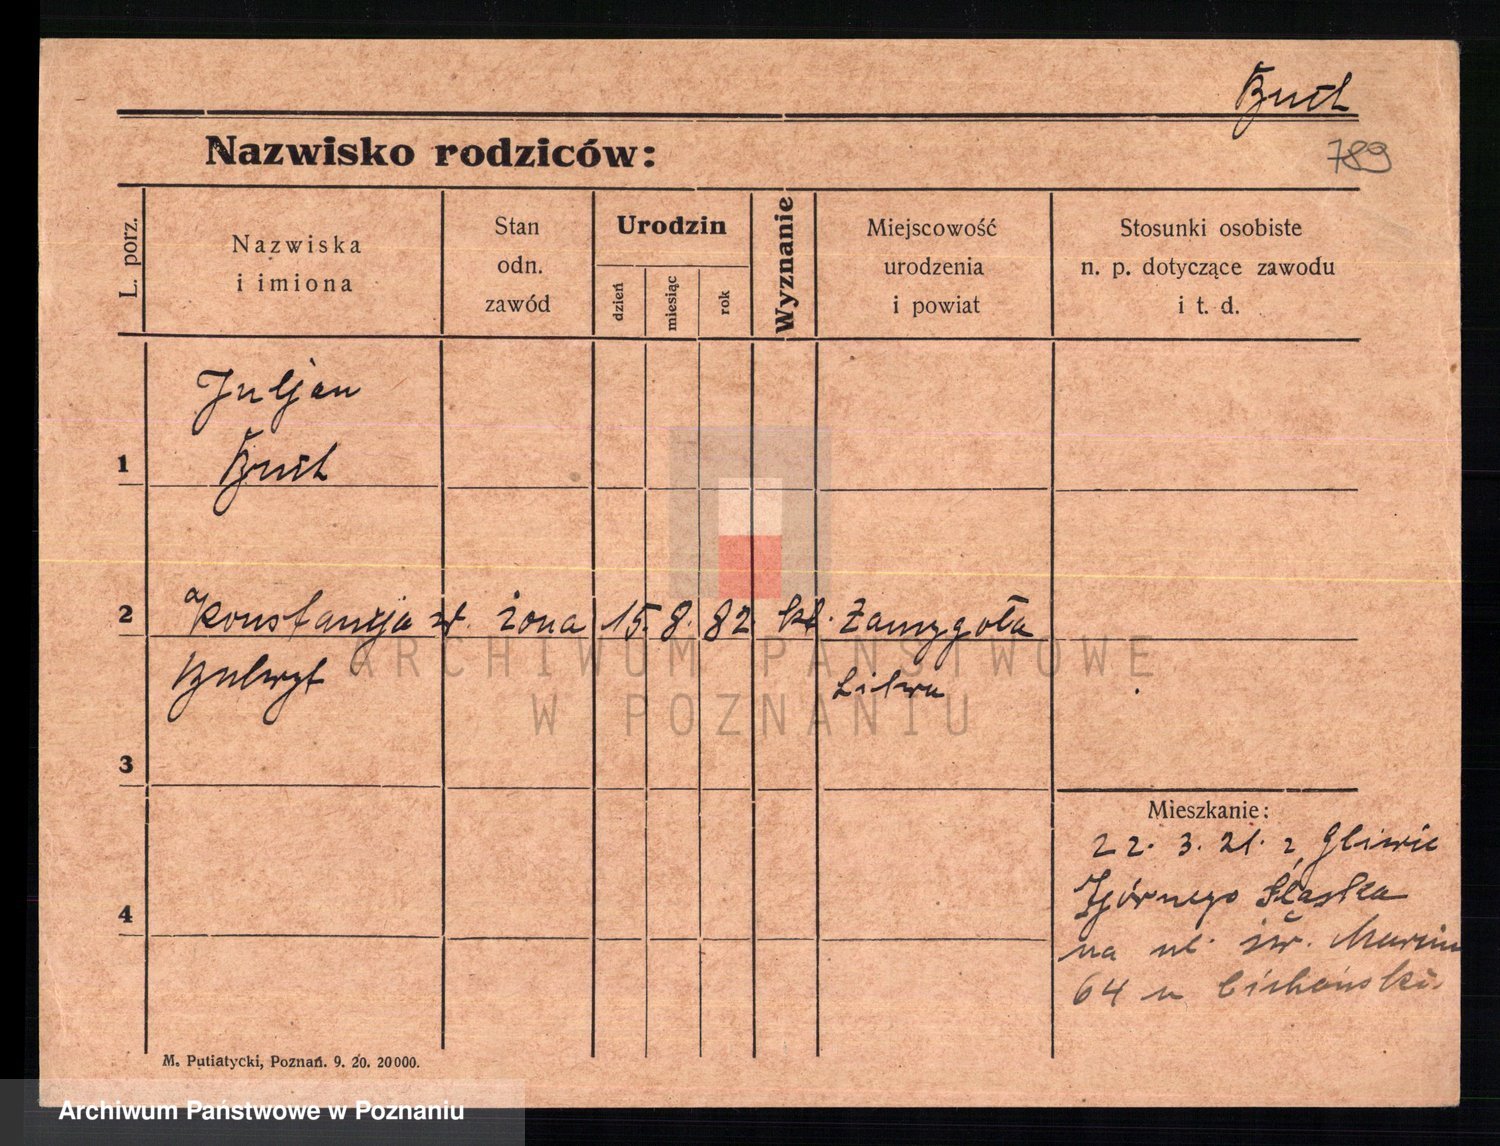 Buił
789
Nazwisko rodziców:
L. porz.
Nazwiska
i imiona
Stan
odn.
zawód
Urodzin
dzień
miesiąc
rok
Wyznanie
Miejscowość
urodzenia
i powiat
Stosunki osobiste
n. p. dotyczące zawodu
i t. d.
Juljan
1
2 Konstancja żona 15. 8. 82 kt. Żamygoła
Litwa
ARCHIWUM PAŃSTWOWE
W POZNANIU
3
Mieszkanie:
22. 3. 21. z Gliwic
Górnego Śląska
4
na ul. św. Marcin
64 u
M. Putiatycki, Poznań. 9. 20. 20000.
Archiwum Państwowe w Poznaniu